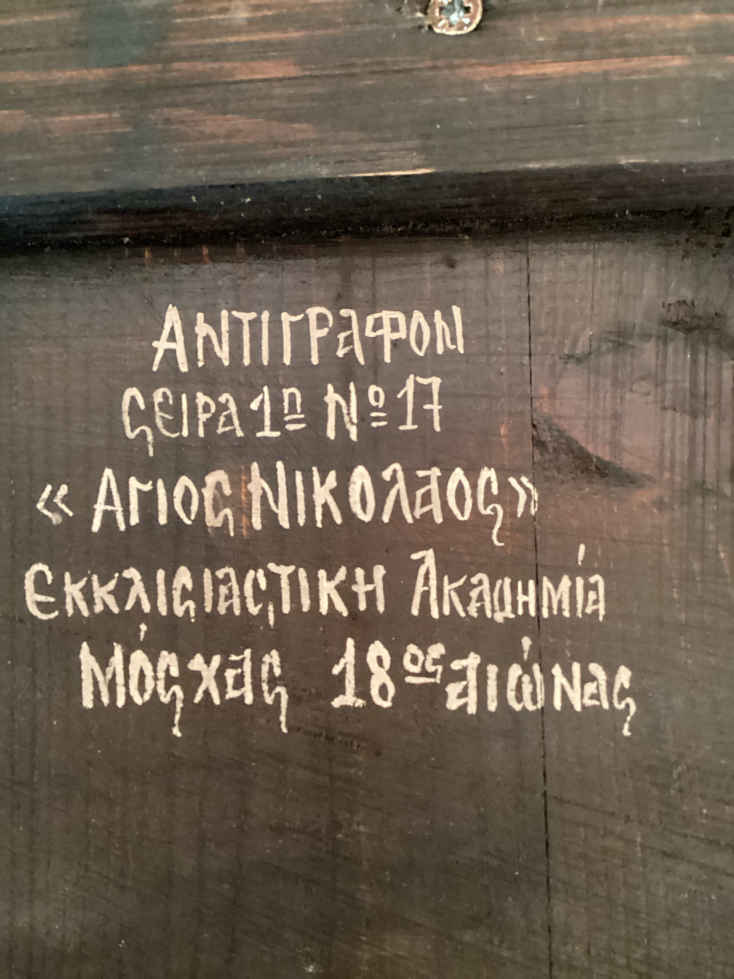 ΑΝΤΙΓΡΑΦΟΝ
ςΕΙΡΑ 1η Νο 17
«ΑΓΙΟς ΝΙΚΟΛΑΟς»
ΕΚΚΛΙςΙΑςΤΙΚΗ ΑΚΑΔΗΜίΑ
ΜΌςΧΑς 18ος ΑΙώΝΑς